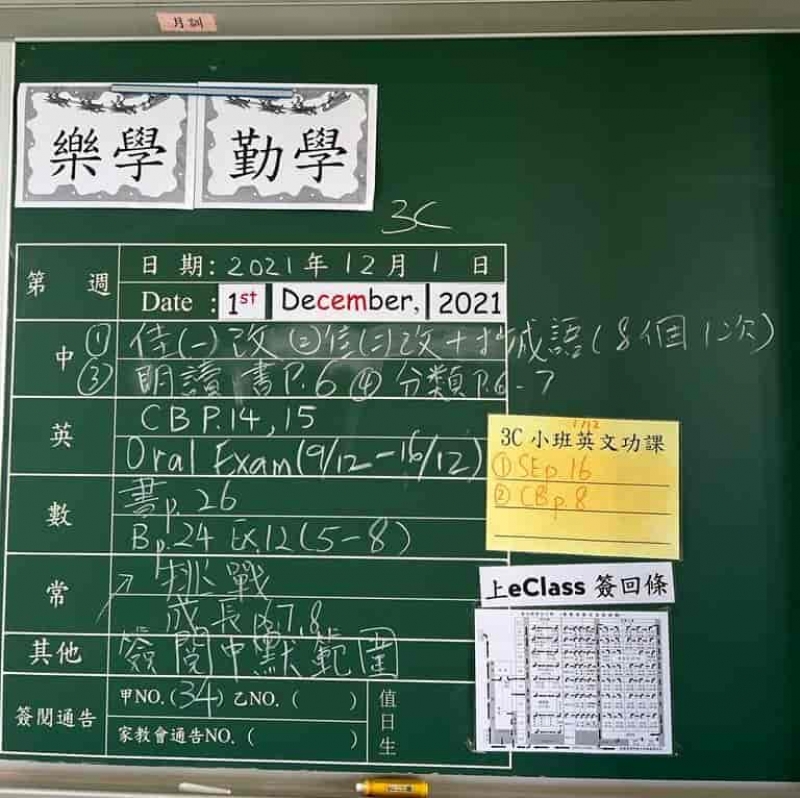 月訓
樂學 勤學
3C
第 週
日 期: 2021 年 12 月 1 日
Date : 1st December, 2021
中
① 佳(一)改 ②佳(二)改+抄成語(8個1次)
③ 朗讀 書P.6 ④ 分類P.6-7
英
CB P.14, 15
Oral Exam (9/12-16/12)
數
書p.26
Bp.24 Ex12(5-8)
常
挑戰
成長p.7,8
其他
簽閱中默範圍
簽閱通告
甲NO.(34) 乙NO.( )
家教會通告NO.( )
值日生
1/12
3C 小班英文功課
① SEp.16
② CBp.8
上eClass 簽回條